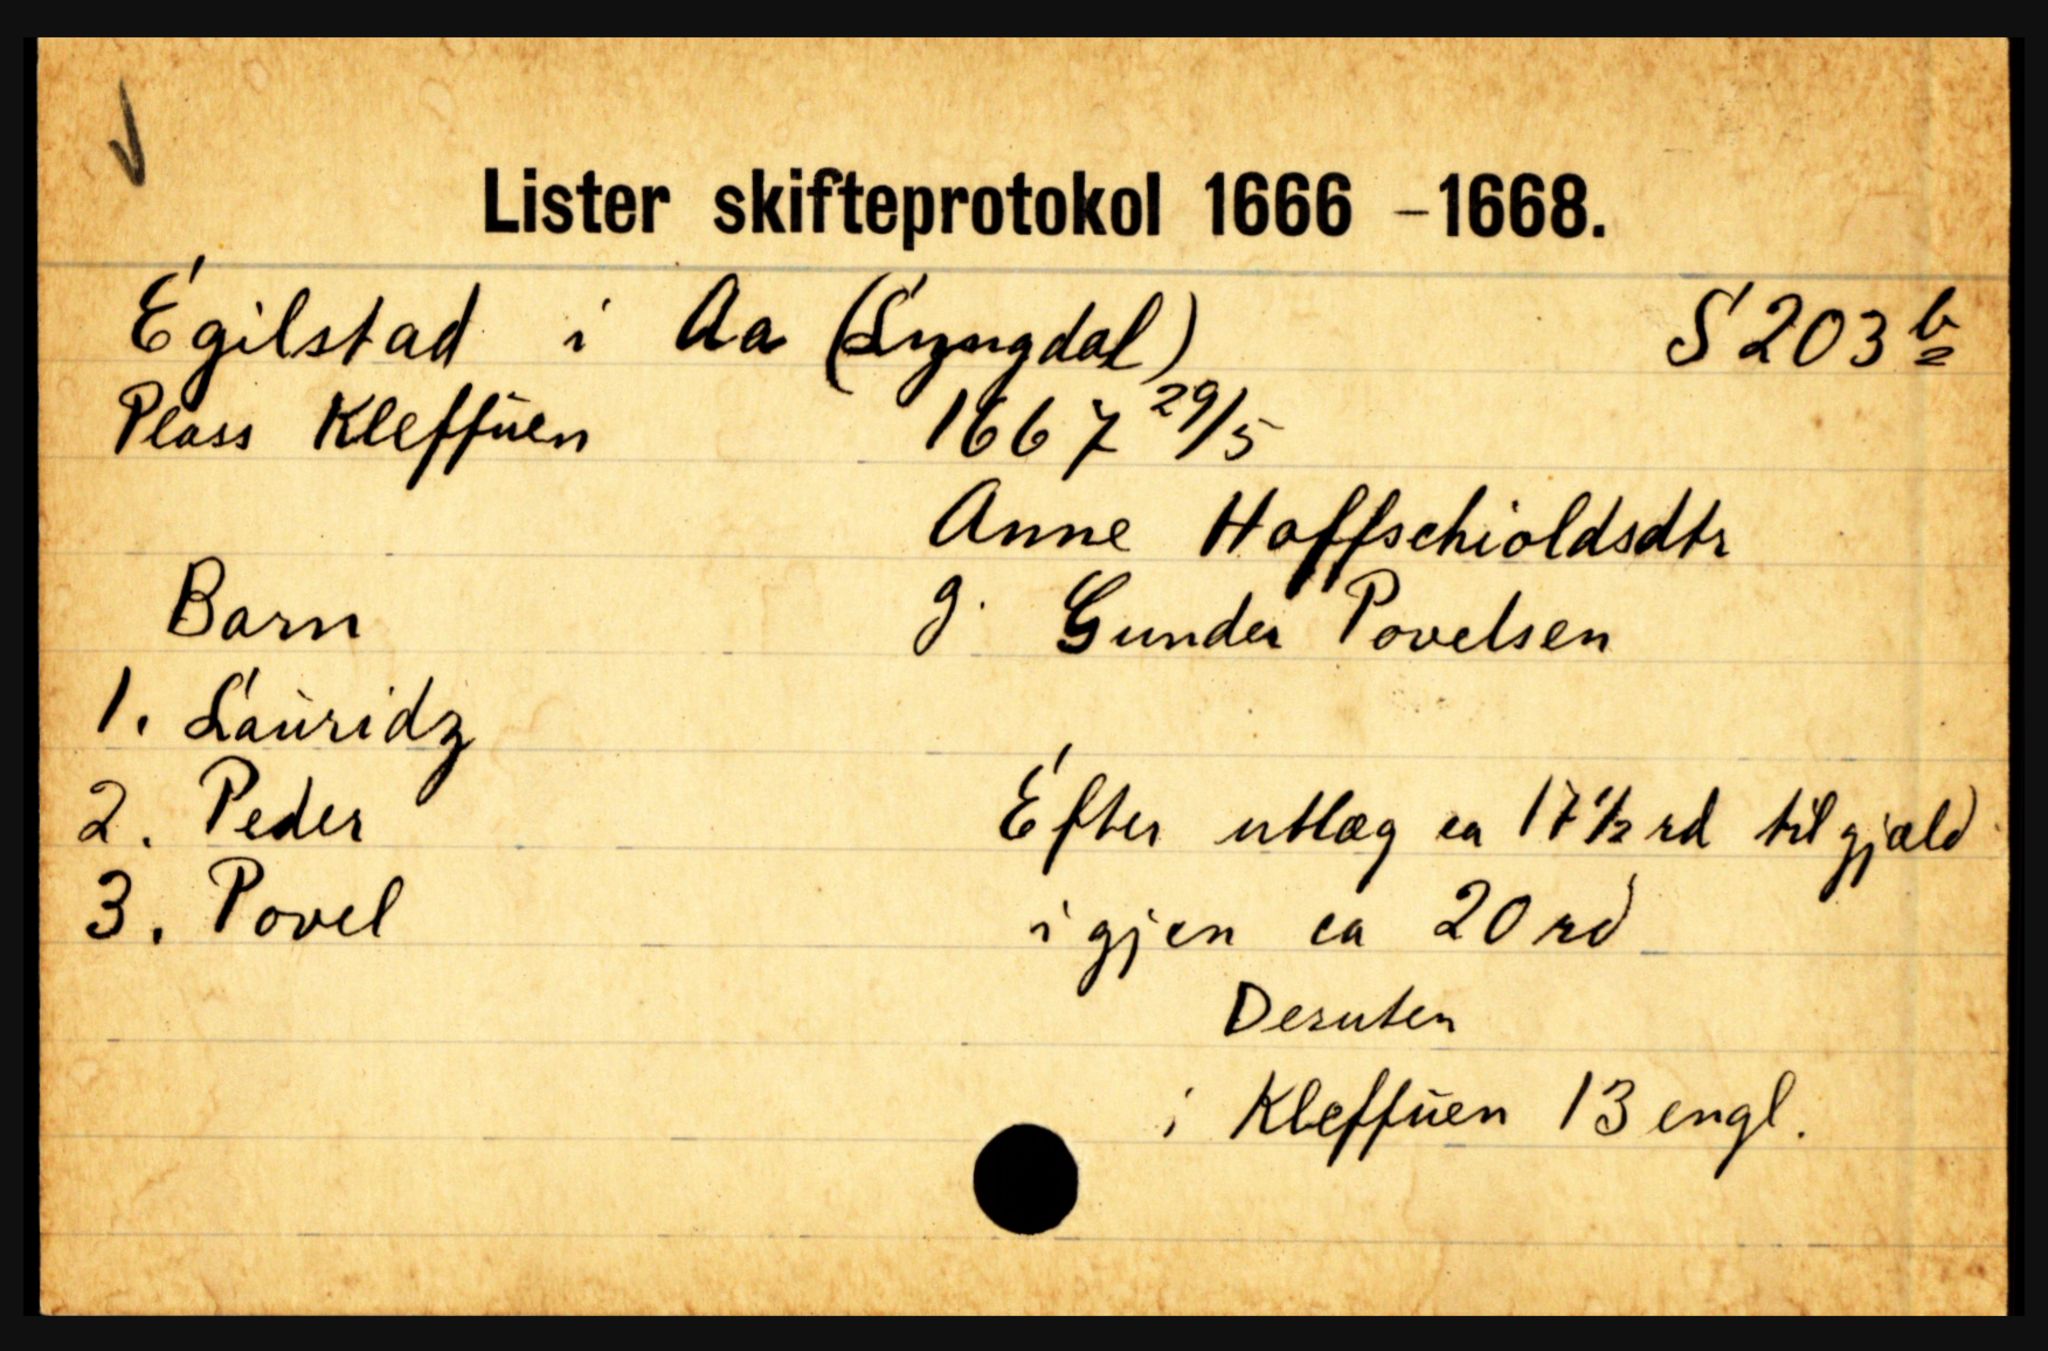 Lister skifteprotokol 1666 - 1668.
Egilstad i Aa (Lyngdal) S 203 b
Plass Kleffuen 1667 29/5
Anne Hoffschioldsdtr
Barn g. Gunder Povelsen
1. Lauridz
2. Peder Efter utlæg ca 17 1/2 rd til gjæld
3. Povel igjen ca 20 rd
Desuten
i Kleffuen 13 engl.